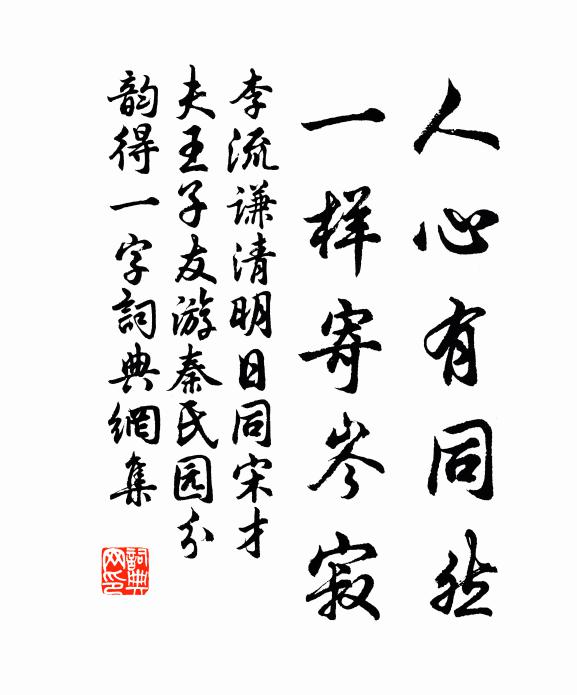 人心有同然
一样寄岑寂
李流谦清明日同宋才
夫王子友游秦氏园分
韵得一字詞典網集
詞典网印